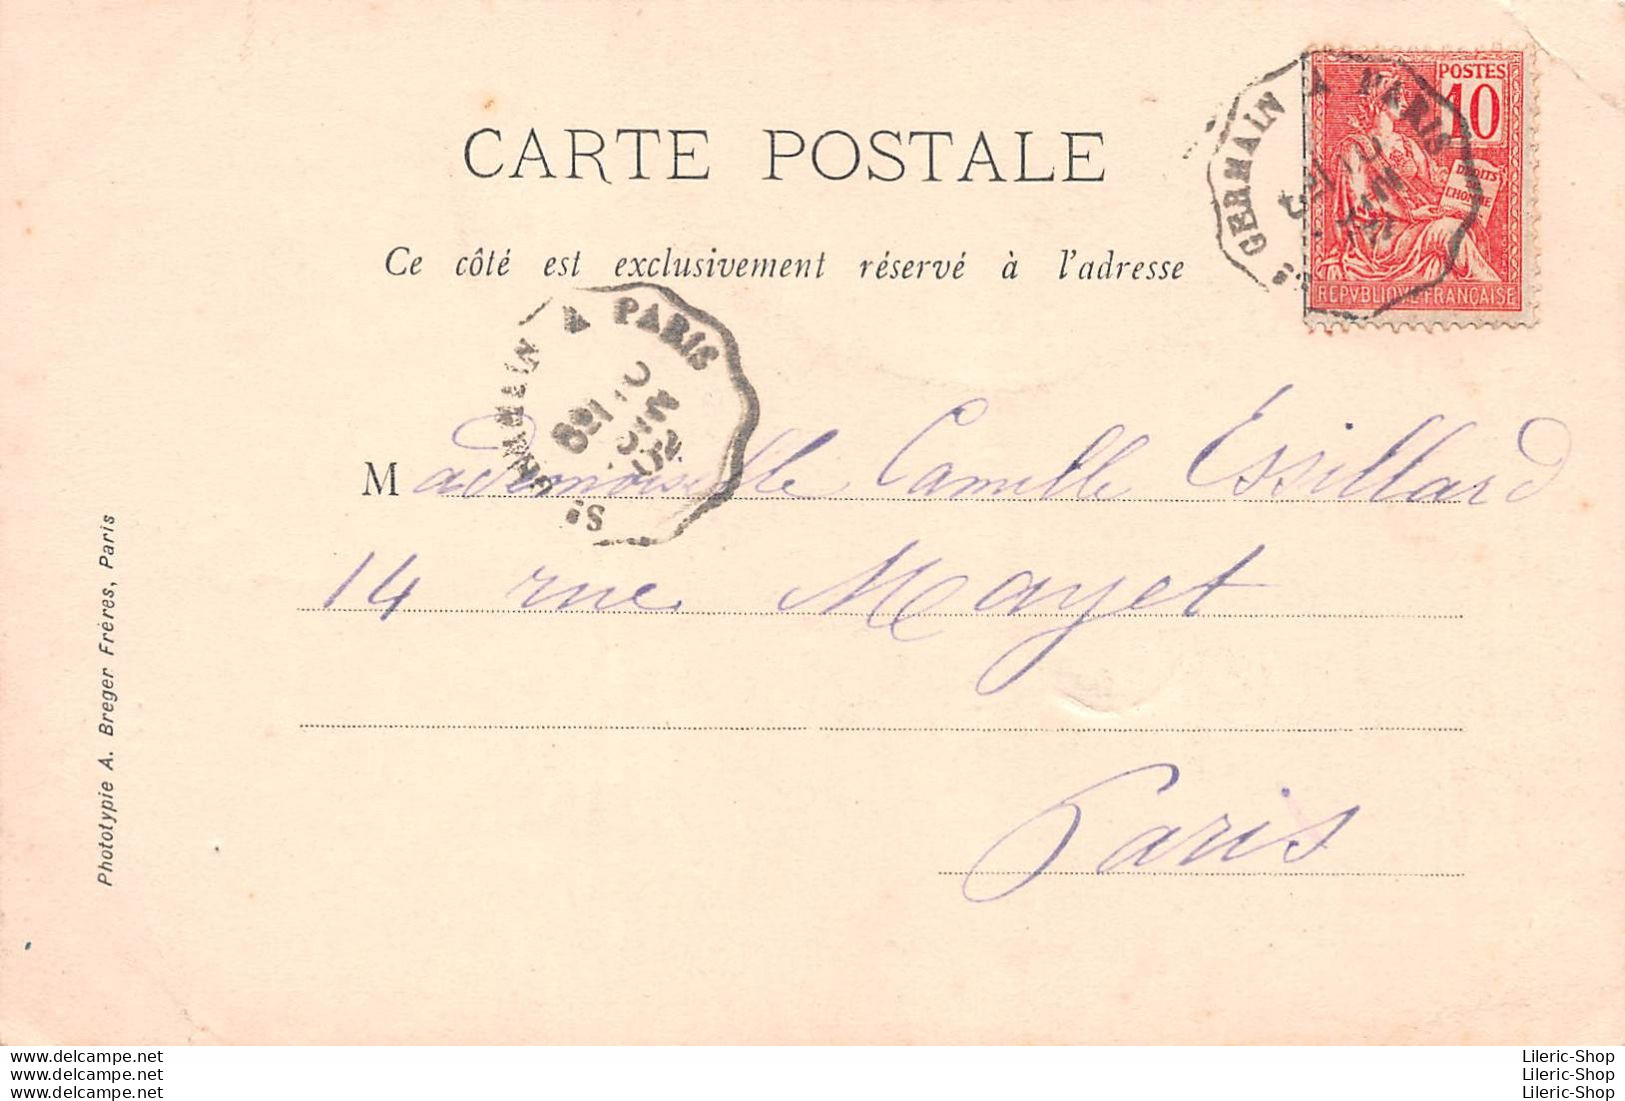 CARTE POSTALE
Ce côté est exclusivement réservé à l'adresse
POSTES
10
DROITS
DE
L'HOMME
REPVBLIQUE FRANÇAISE
St GERMAIN A PARIS
St GERMAIN A PARIS
JUIN
02
Mademoiselle Camille Essillard
14 rue Mayet
Paris
Phototypie A. Breger Frères, Paris
www.delcampe.net
www.delcampe.net
www.delcampe.net
Lileric-Shop
Lileric-Shop
Lileric-Shop